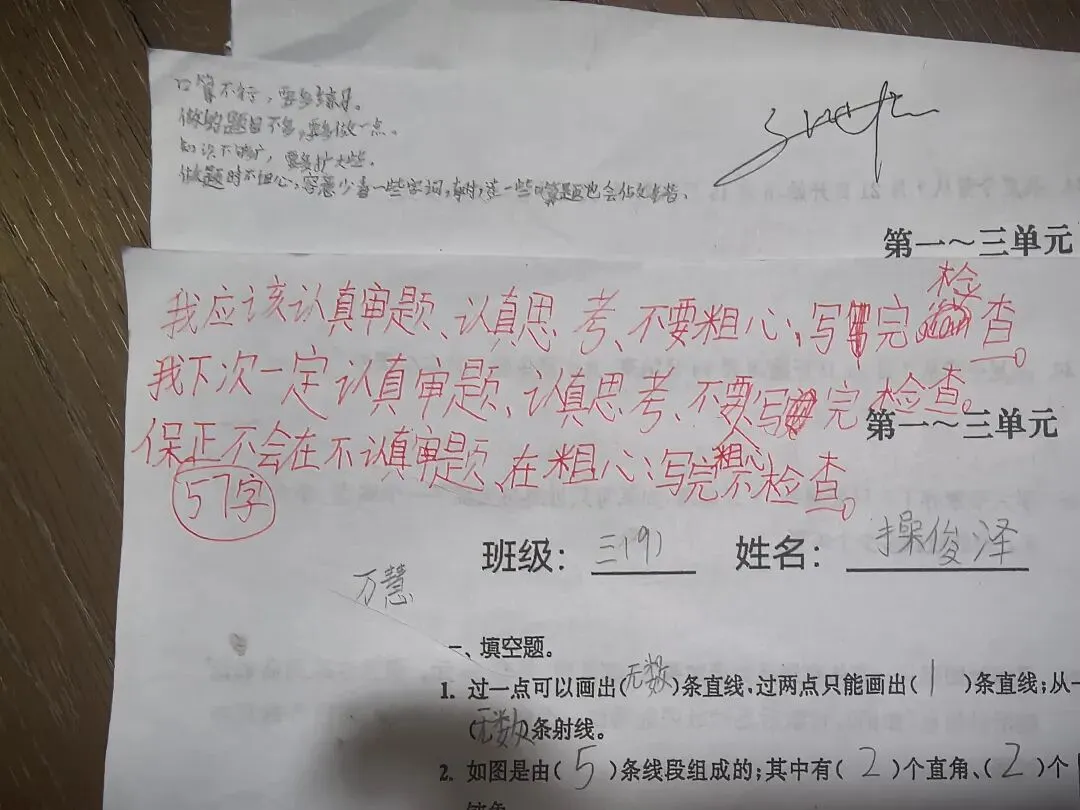 口算不行，要多练习。
做的题目不多，要多做一点。
知识不够广，要多扩大些。
做题时不细心，容易少看一些字词，有时连一些口算题也会做错。
第一～三单元
我应该认真审题、认真思考、不要粗心，写完检查。
我下次一定认真审题、认真思考、不要粗心写完检查。
保正不会在不认真审题、在粗心，写完不检查。
57字
第一～三单元
班级：三(9) 姓名：操俊泽
万慧
一、填空题。
1. 过一点可以画出(无数)条直线，过两点只能画出(1)条直线；从一
(无数)条射线。
2. 如图是由(5)条线段组成的；其中有(2)个直角、(2)个